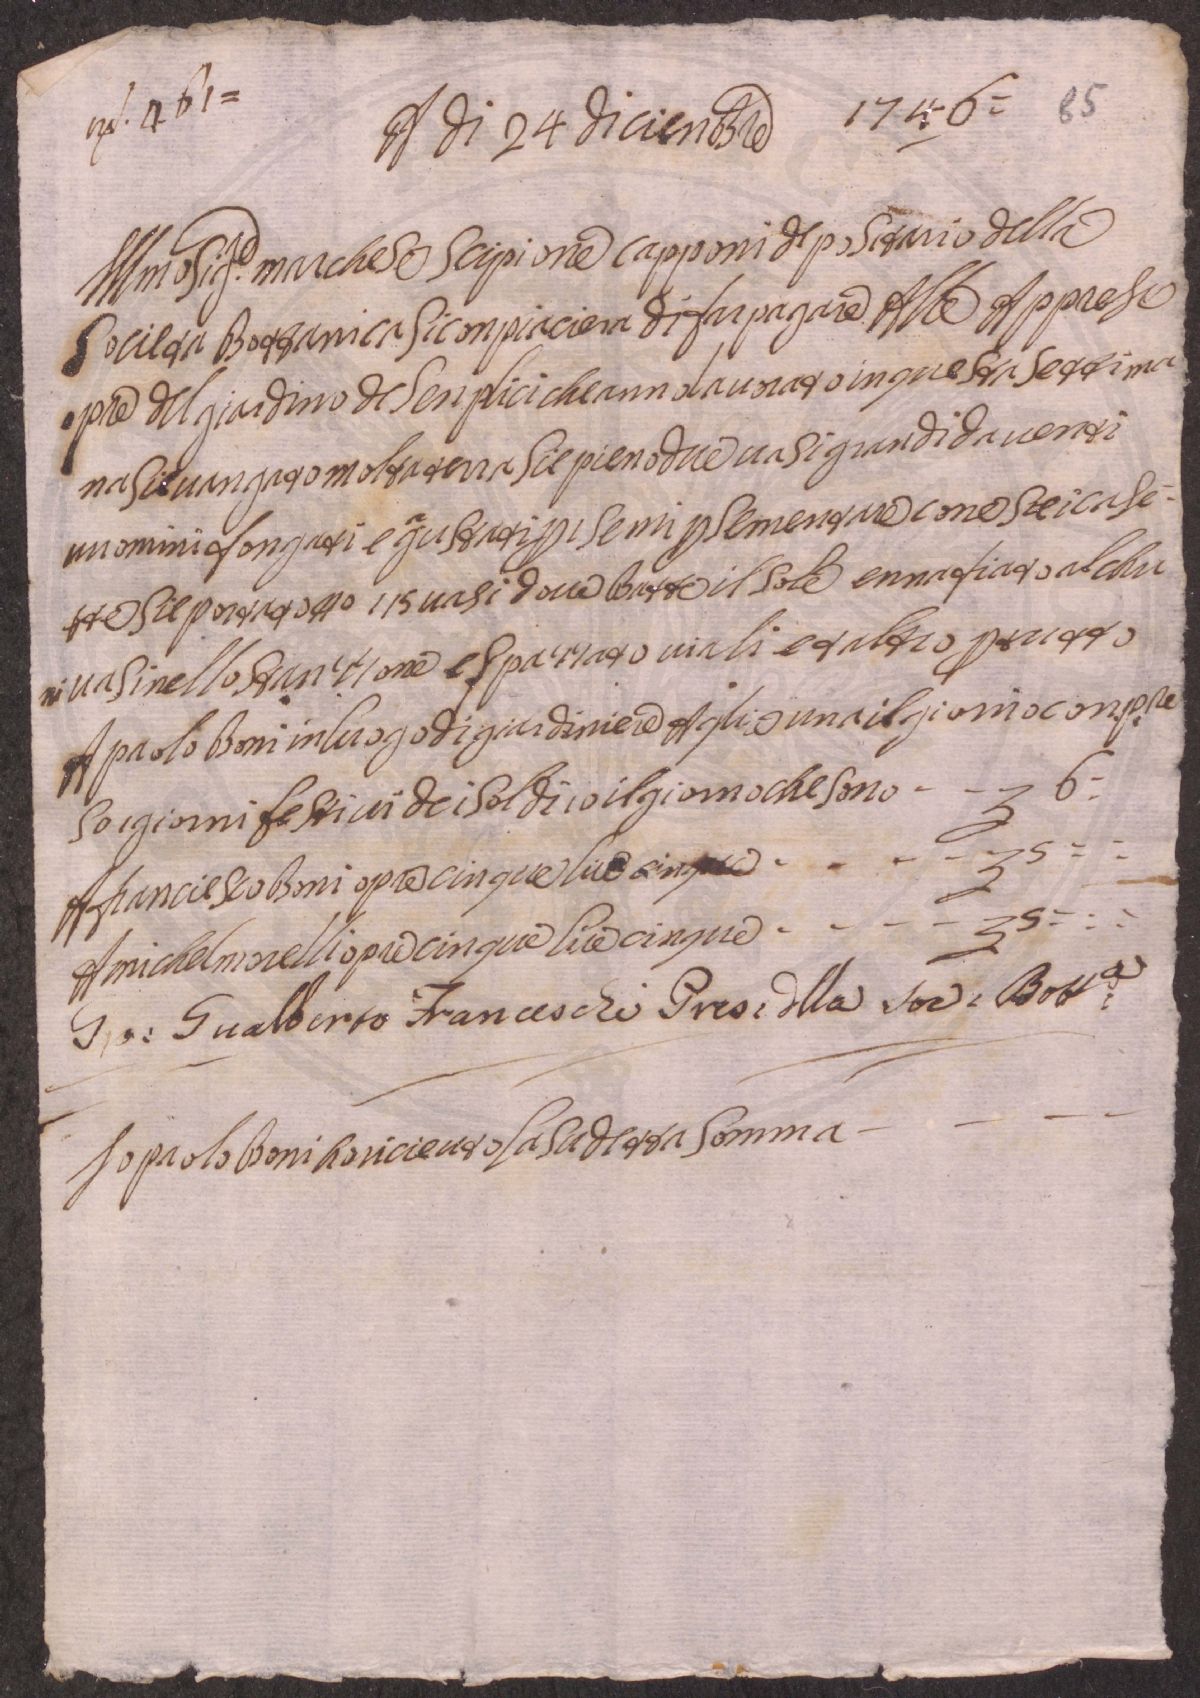 461=
A di 24 diciembre 1746= 85
Illmo Sige marchese Scipione capponi depositario della
Socileta Bottanica si conpiaciera di far pagare Alle Appresso
opre del giardino de senplici che anno lauorato in questa settima
na si è uangato molta terra si è pieno due uasi grandi da uenti
uuomini longati e gustati p i semi p sementare con e steicase=
tre si è portato sotto 115 uasi doue batte il sole ennafiato alchu
ni uasi nello stantione e spattato uiali et altro p tutto
A paolo Boni in luogo di giardiniere A glie una il giorno conpre
so i giorni festiui dei soldi 10 il giorno che sono - - 6=
A franciesco Boni opre cinque lire cinque - - - - 5 = =
A michel morelli opre cinque lire cinque - - - - 5 = = =
Gio: Gualberto Franceschi Pres: della Soc: Botta:
Io paolo Boni ho ricieuto la su detta somma - - -